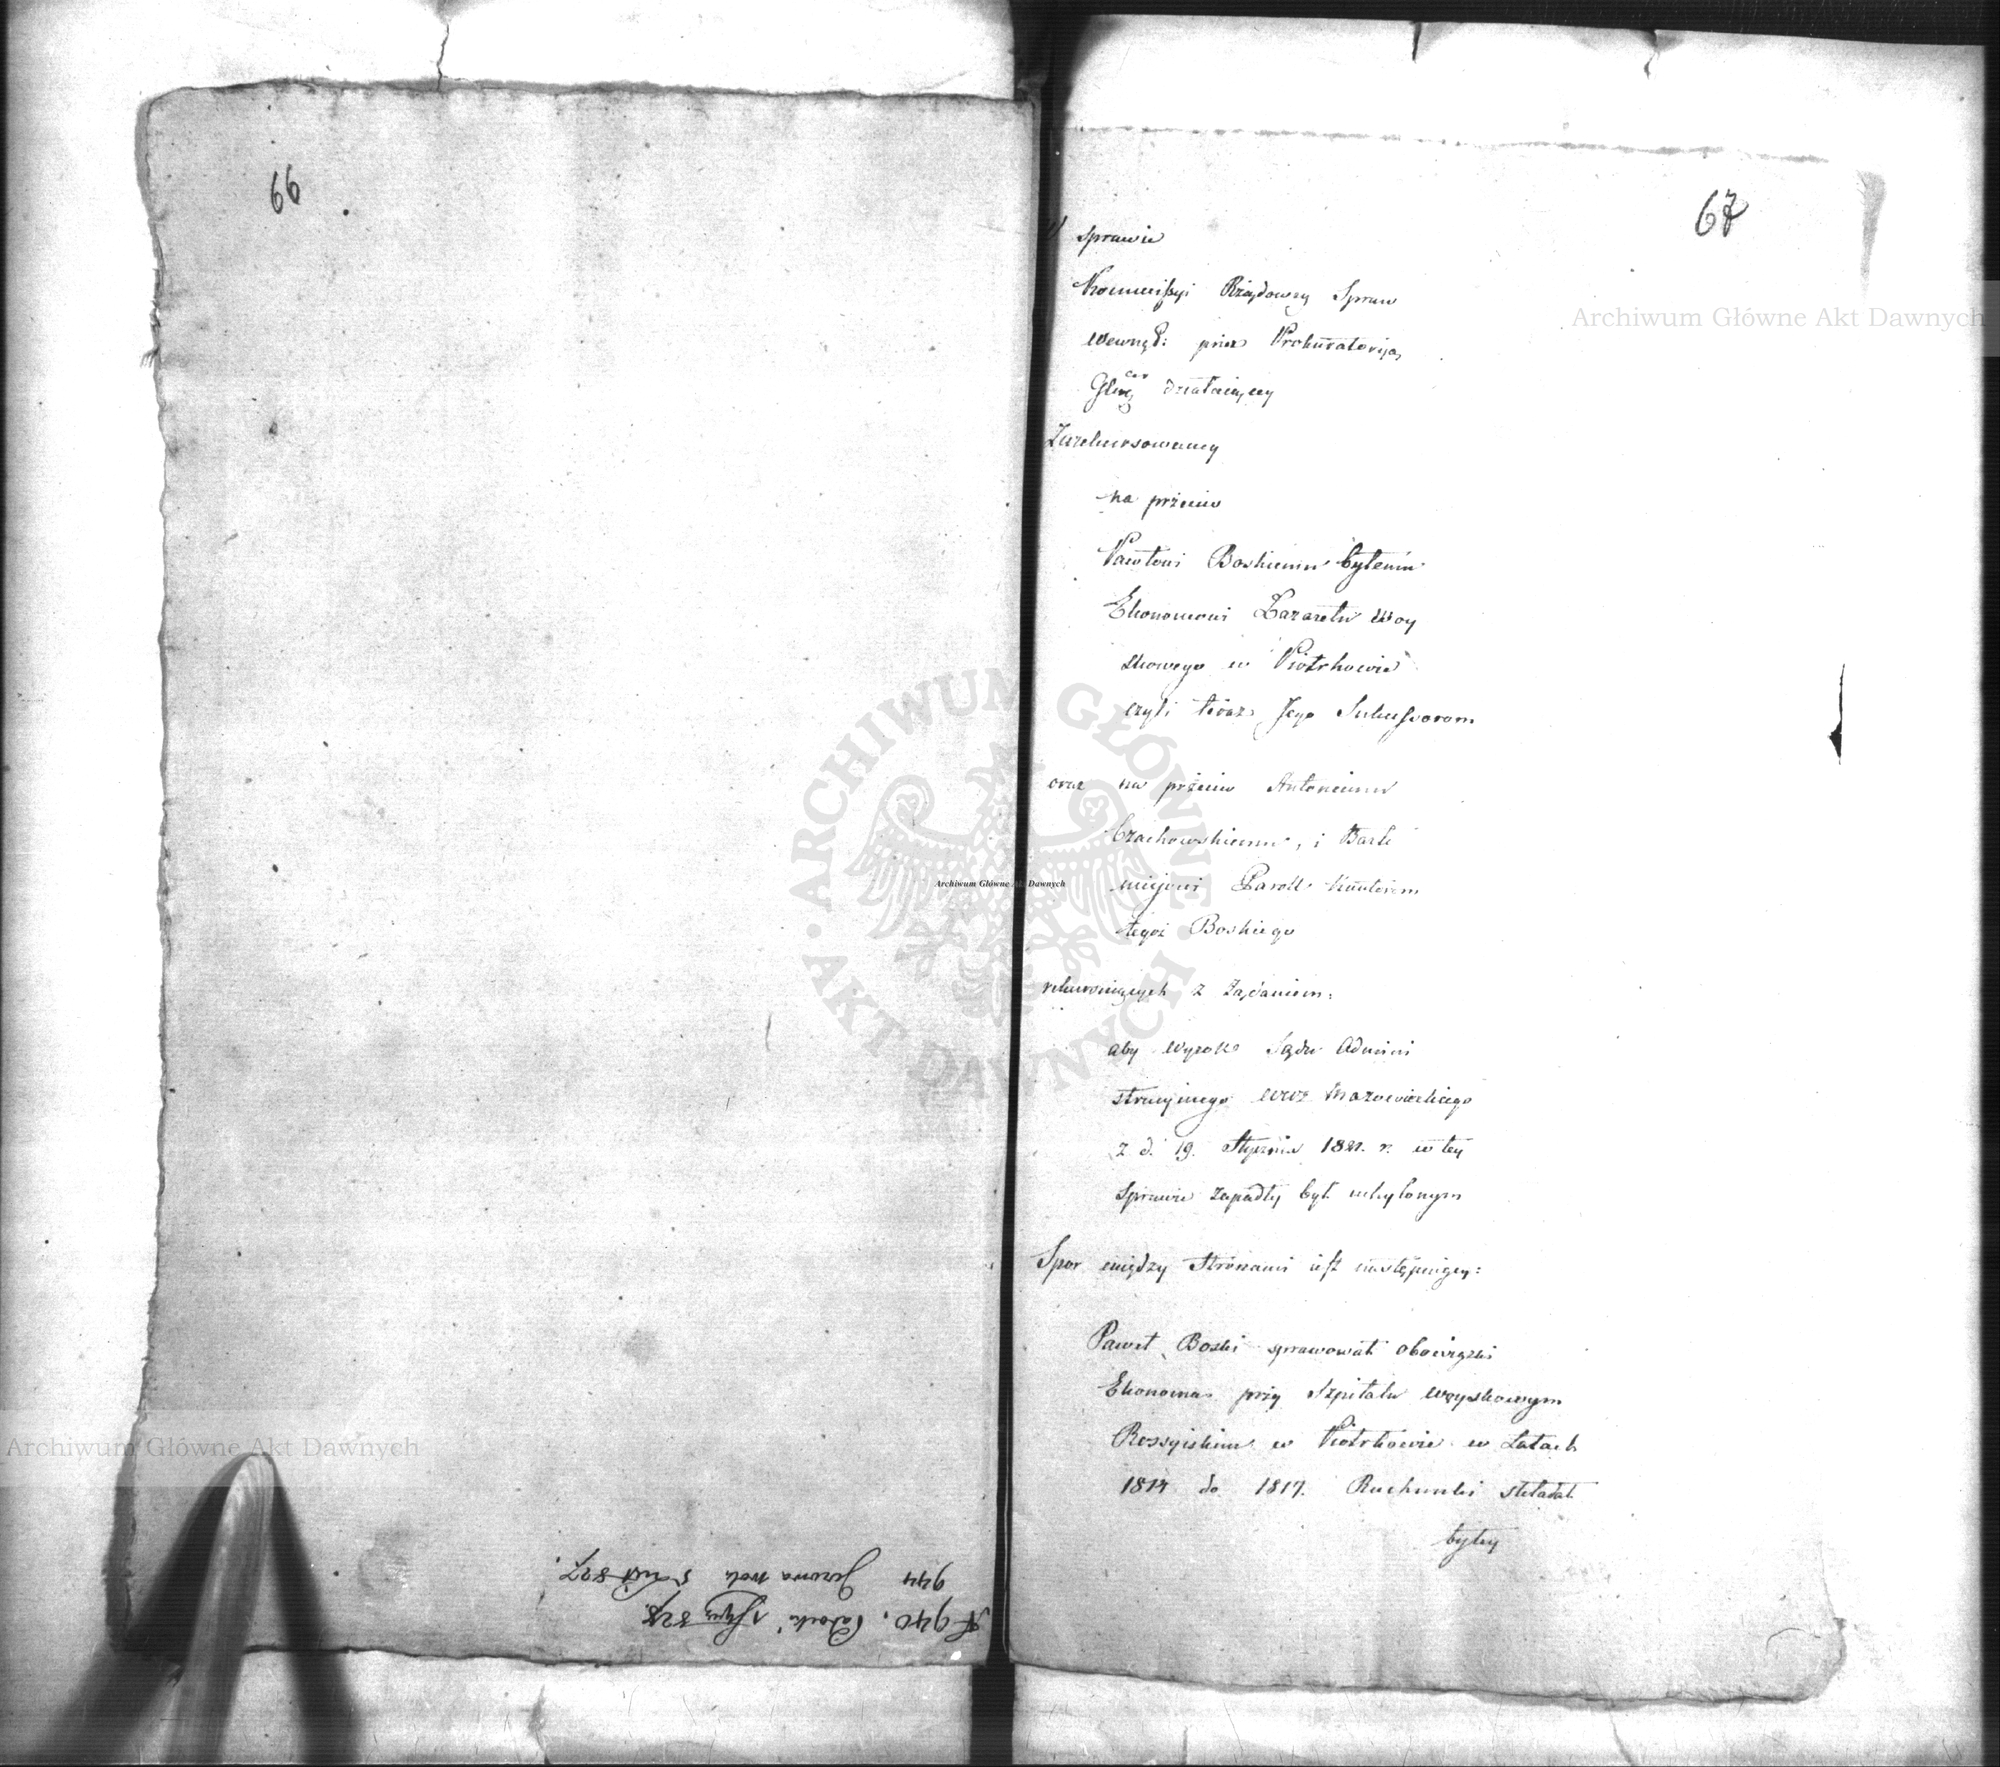 66
67
W Sprawie
Kommissyi Rządowey Spraw
Wewnęt: przez Prokuratoryą
Glną działaiącey
Zarekursowaney
na przeciw
Pawłowi Boskiemu byłemu
Ekonomowi Lazaretu Woy
skowego w Piotrkowie
czyli teraz Jego Sukcessorom
oraz na przeciw Antoniemu
Czachowskiemu, i Bartł
miejowi
tegoż Boskiego
rekursuiących z żądaniem:
aby wyrok Sądu Admini
stracyinego Wwa Mazowieckiego
z d. 19. Stycznia 1821. r. w tey
Sprawie zapadły był uchylonym
Spor między Stronami iest następuiący:
Paweł Boski sprawował obowiązki
Ekonoma przy Szpitalu woyskowym
Rossyiskim w Piotrkowie w Latach
1814 do 1817. Rachunki składał
byłey
944 827.
N 940. 828.
Archiwum Główne Akt Dawnych
Archiwum Główne Akt Dawnych
Archiwum Główne Akt Dawnych
ARCHIWUM GŁÓWNE AKT DAWNYCH